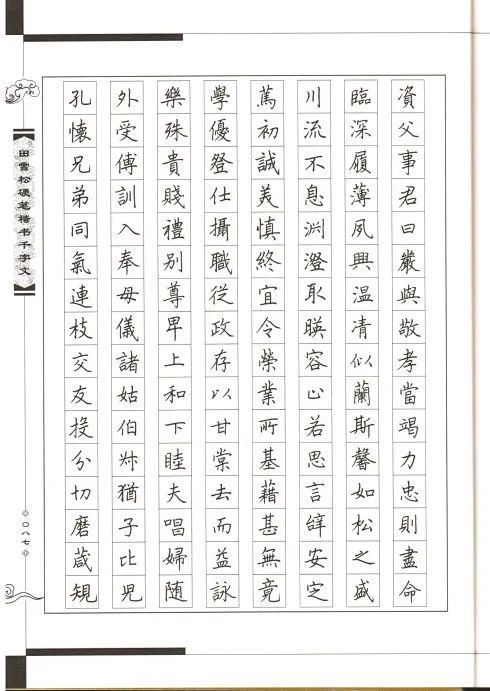 資父事君曰嚴與敬孝當竭力忠則盡命
臨深履薄夙興温凊似蘭斯馨如松之盛
川流不息渊澄取暎容止若思言辝安定
篤初誠美慎終宜令榮業所基藉甚無竟
學優登仕攝職從政存以甘棠去而益詠
樂殊貴賤禮別尊卑上和下睦夫唱婦随
外受傅訓入奉母儀諸姑伯叔猶子比兒
孔懷兄弟同氣連枝交友投分切磨箴規
田雪松硬笔楷书千字文
〇八七